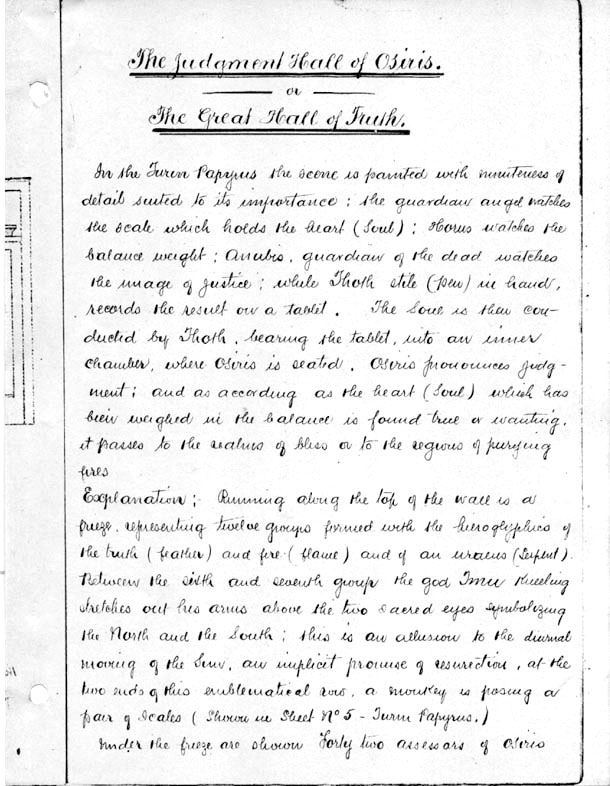 The Judgment Hall of Osiris.
or
The Great Hall of Truth.
In the Turin Papyrus the scene is painted with minuteness of
detail suited to its importance; the guardian angel watches
the scale which holds the heart (Soul); Horus watches the
balance weight; Anubis, guardian of the dead watches
the image of Justice; while Thoth stile (pen) in hand,
records the result on a tablet. The Soul is then con-
ducted by Thoth, bearing the tablet, into an inner
chamber, where Osiris is seated. Osiris pronounces judg-
ment; and as according as the heart (Soul) which has
been weighed in the balance is found true or wanting,
it passes to the realms of bliss or to the regions of purifying
fires
Explanation;- Running along the top of the wall is a
freeze, representing twelve groups formed with the hieroglyphics of
the truth (feather) and fire (flame) and of an uraeus (Serpent).
Between the sixth and seventh group the god Tmu kneeling
stretches out his arms above the two sacred eyes symbolizing
the North and the South; this is an allusion to the diurnal
moving of the Sun, an implicit promise of resurection, at the
two ends of this emblematical row, a monkey is posing a
pair of Scales (Shown in Sheet No 5 - Turin Papyrus.)
Under the freeze are shown Forty two assessors of Osiris